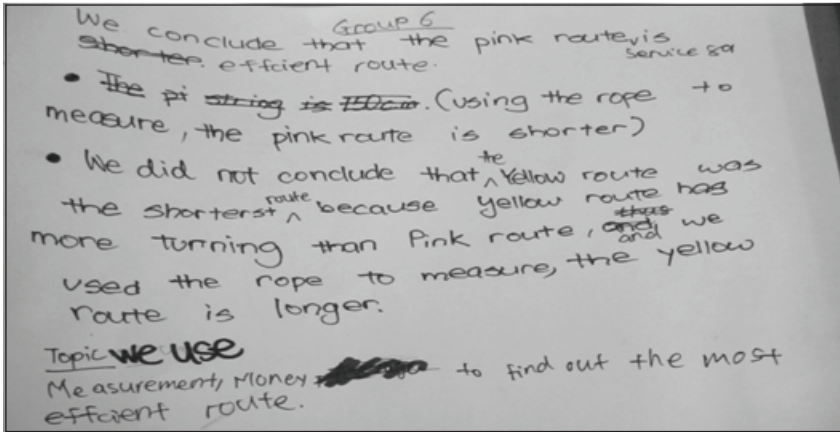 Group 6
We conclude that the pink route, is
service 89
shorter. effcient route.
• The pi string is 150cm. (using the rope to
measure, the pink route is shorter)
• We did not conclude that ^the Yellow route was
the shorterst ^route because yellow route has
more turning than Pink route, and thus and we
used the rope to measure, the yellow
route is longer.
Topic we use
Measurement, Money to find out the most
effcient route.